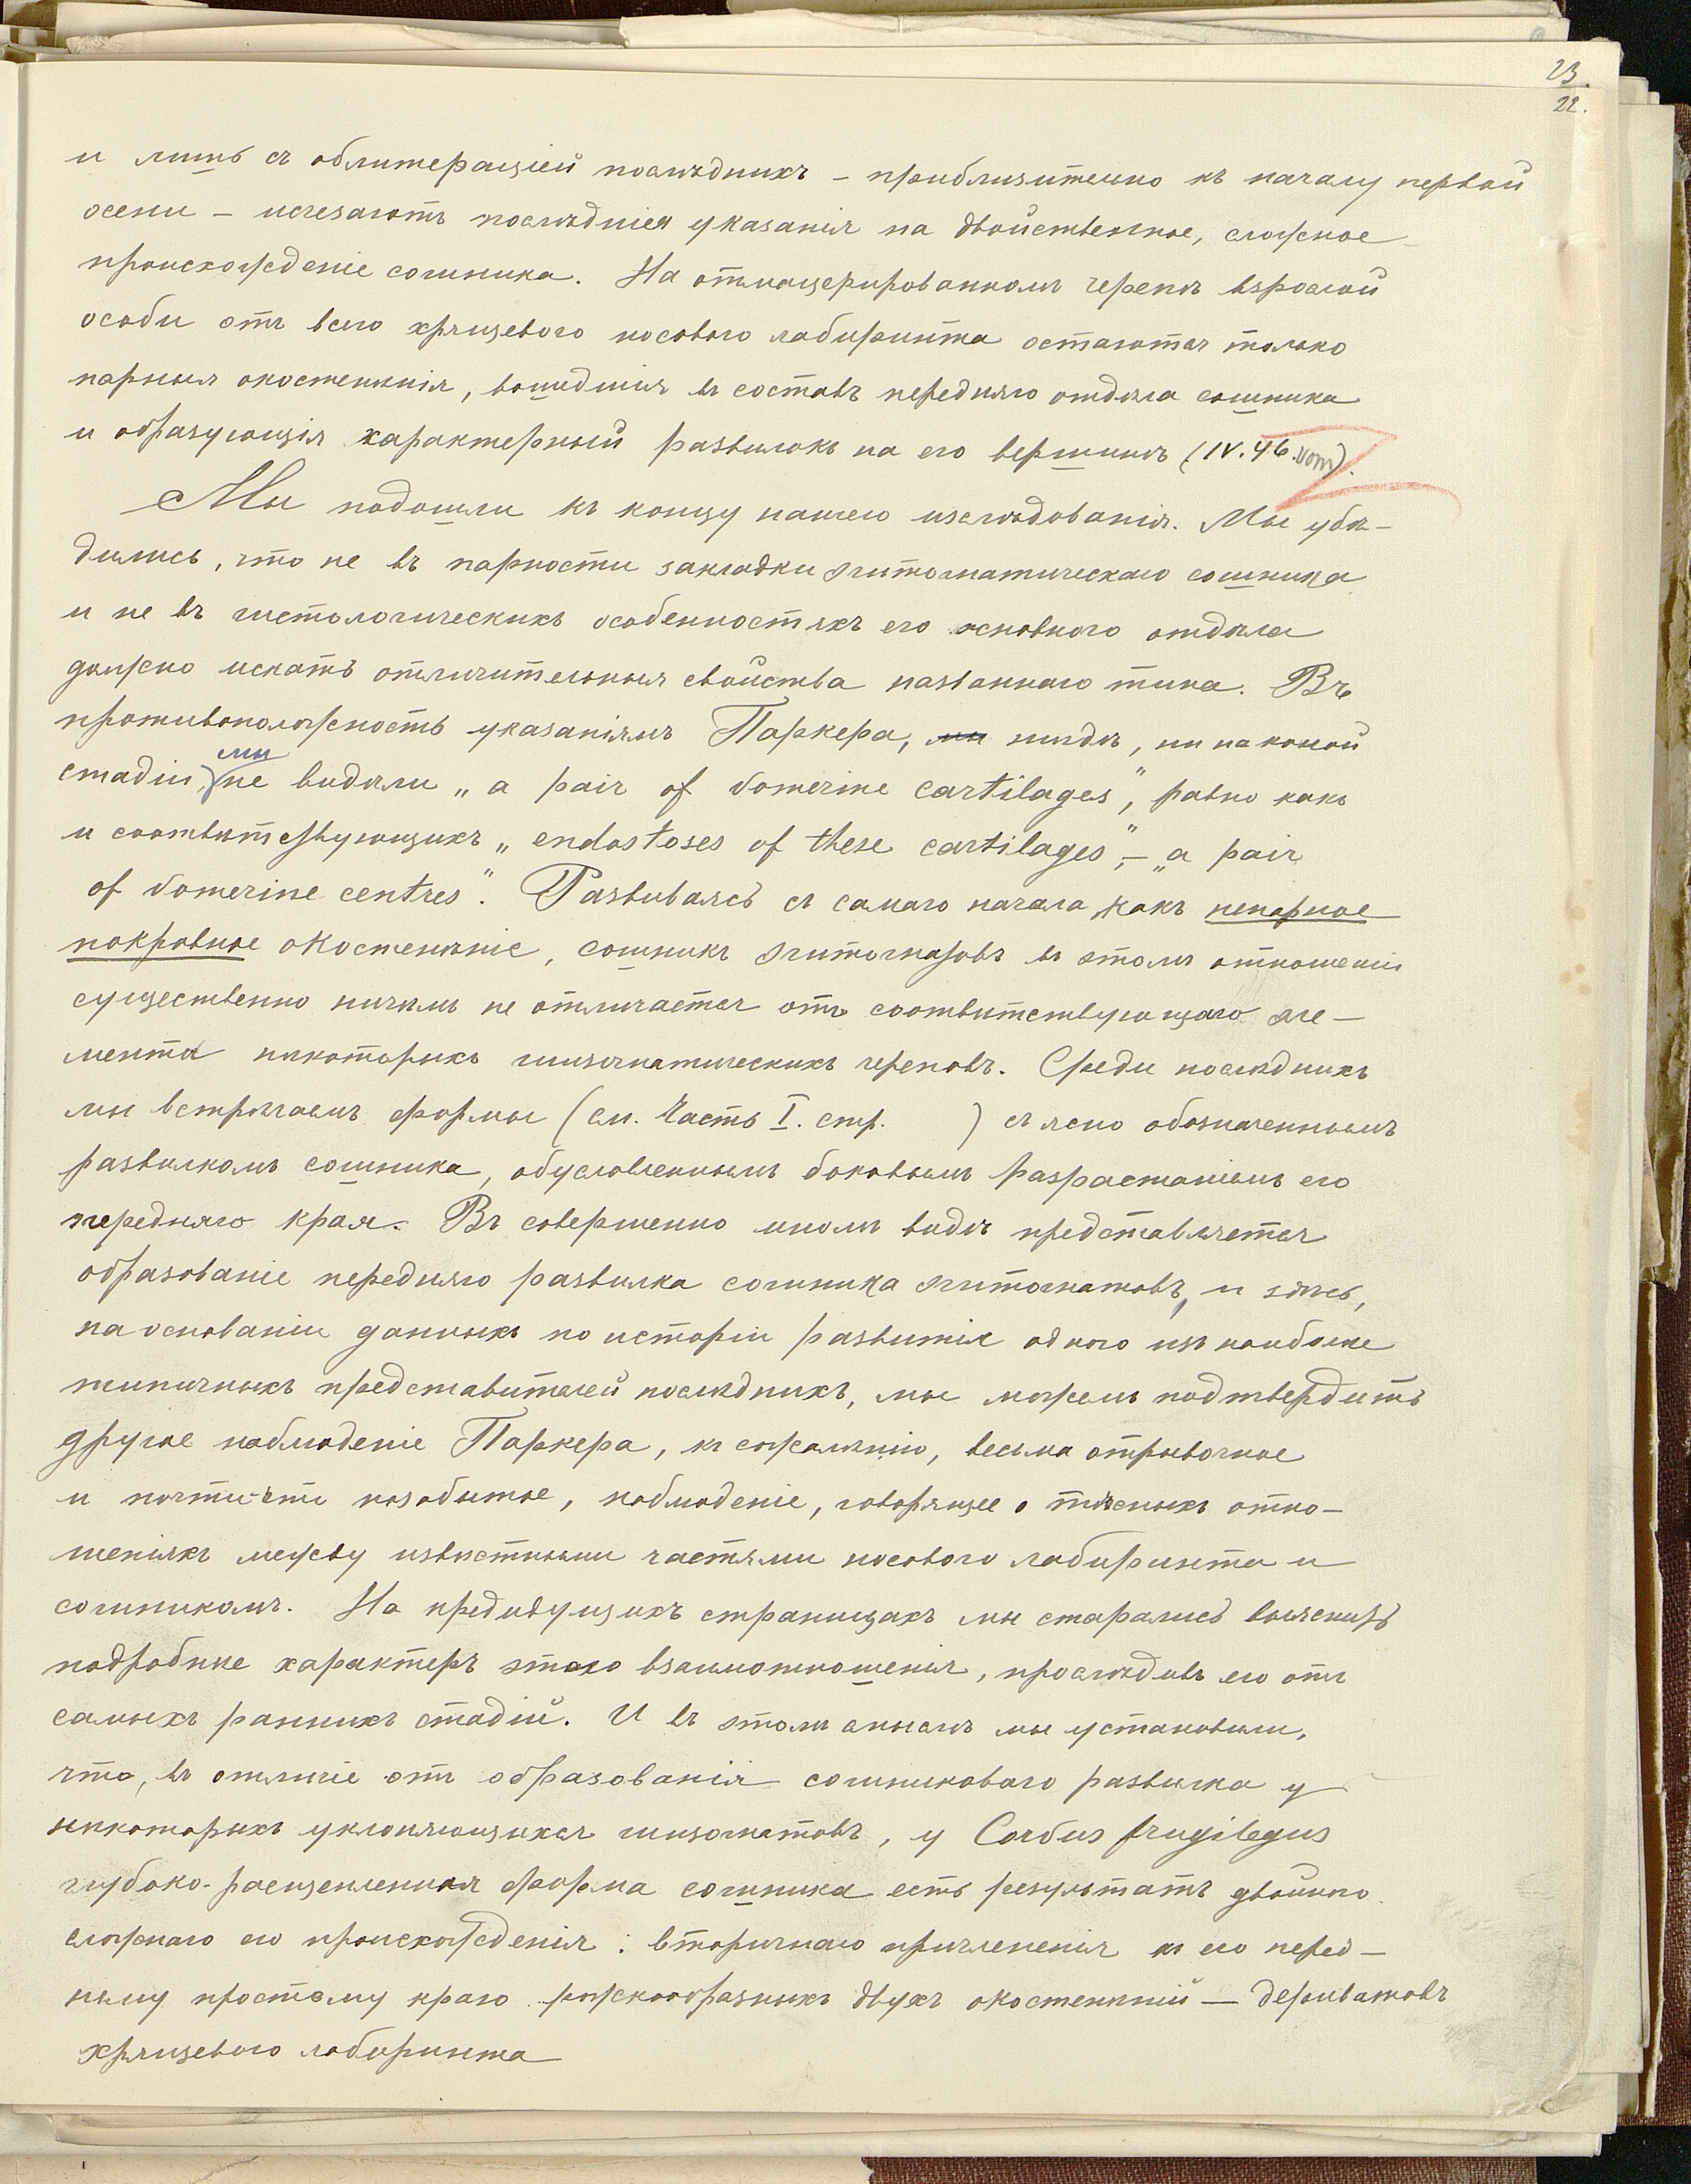 23.
22.
и лишь съ облитераціей послѣднихъ – приблизительно къ началу первой
осени – исчезаютъ послѣднія указанія на двойственное, сложное
происхожденіе сошника. На отмацерированномъ черепѣ взрослой
особи отъ всего хрящевого носового лабиринта остаются только
парныя окостенѣнія, вошедшія въ составъ передняго отдѣла сошника
и образующія характерный развилокъ на его вершинѣ (IV. 46. vom).
Мы подошли къ концу нашего изслѣдованія. Мы убѣ-
дились, что не въ парности закладки эгитогнатическаго сошника
и не въ гистологическихъ особенностяхъ его основного отдѣла
должно искать отличительныя свойства названнаго типа. Въ
противоположность указаніямъ Паркера, мы нигдѣ, ни на какой
стадіи, мы не видѣли „a pair of vomerine cartilages“, равно какъ
и соотвѣтствующихъ „endostoses of these cartilages“, – „a pair
of vomerine centres“. Развиваясь съ самаго начала, какъ непарное
покровное окостенѣніе, сошникъ эгитогнатовъ въ этомъ отношеніи
существенно ничѣмъ не отличается отъ соотвѣтствующаго эле-
мента нѣкоторыхъ шизогнатическихъ череповъ. Среди послѣднихъ
мы встрѣчаемъ формы (см. Часть I. стр. ) съ ясно обозначеннымъ
развилкомъ сошника, обусловленнымъ боковымъ разрастаніемъ его
передняго края. Въ совершенно иномъ видѣ представляется
образованіе передняго развилка сошника эгитогнатовъ, и здѣсь,
на основаніи данныхъ по исторіи развитія одного изъ наиболѣе
типичныхъ представителей послѣднихъ, мы можемъ подтвердить
другое наблюденіе Паркера, къ сожалѣнію, весьма отрывочное
и почти позабытое, наблюденіе, говорящее о тѣсныхъ отно-
шеніяхъ между извѣстными частями носового лабиринта и
сошникомъ. На предидущихъ страницахъ мы старались выяснить
подробнѣе характеръ этого взаимоотношенія, прослѣдивъ его отъ
самыхъ раннихъ стадій. И въ этомъ смыслѣ мы установили,
что, въ отличіе отъ образованія сошниковаго развилка у
нѣкоторыхъ уклоняющихся шизогнатовъ, у Corvus frugilegus
глубоко-расщепленная форма сошника есть результатъ двойного
сложнаго его происхожденія: вторичнаго причлененія къ его перед-
нему простому краю рожкообразныхъ двухъ окостенѣній – дериватовъ
хрящевого лабиринта